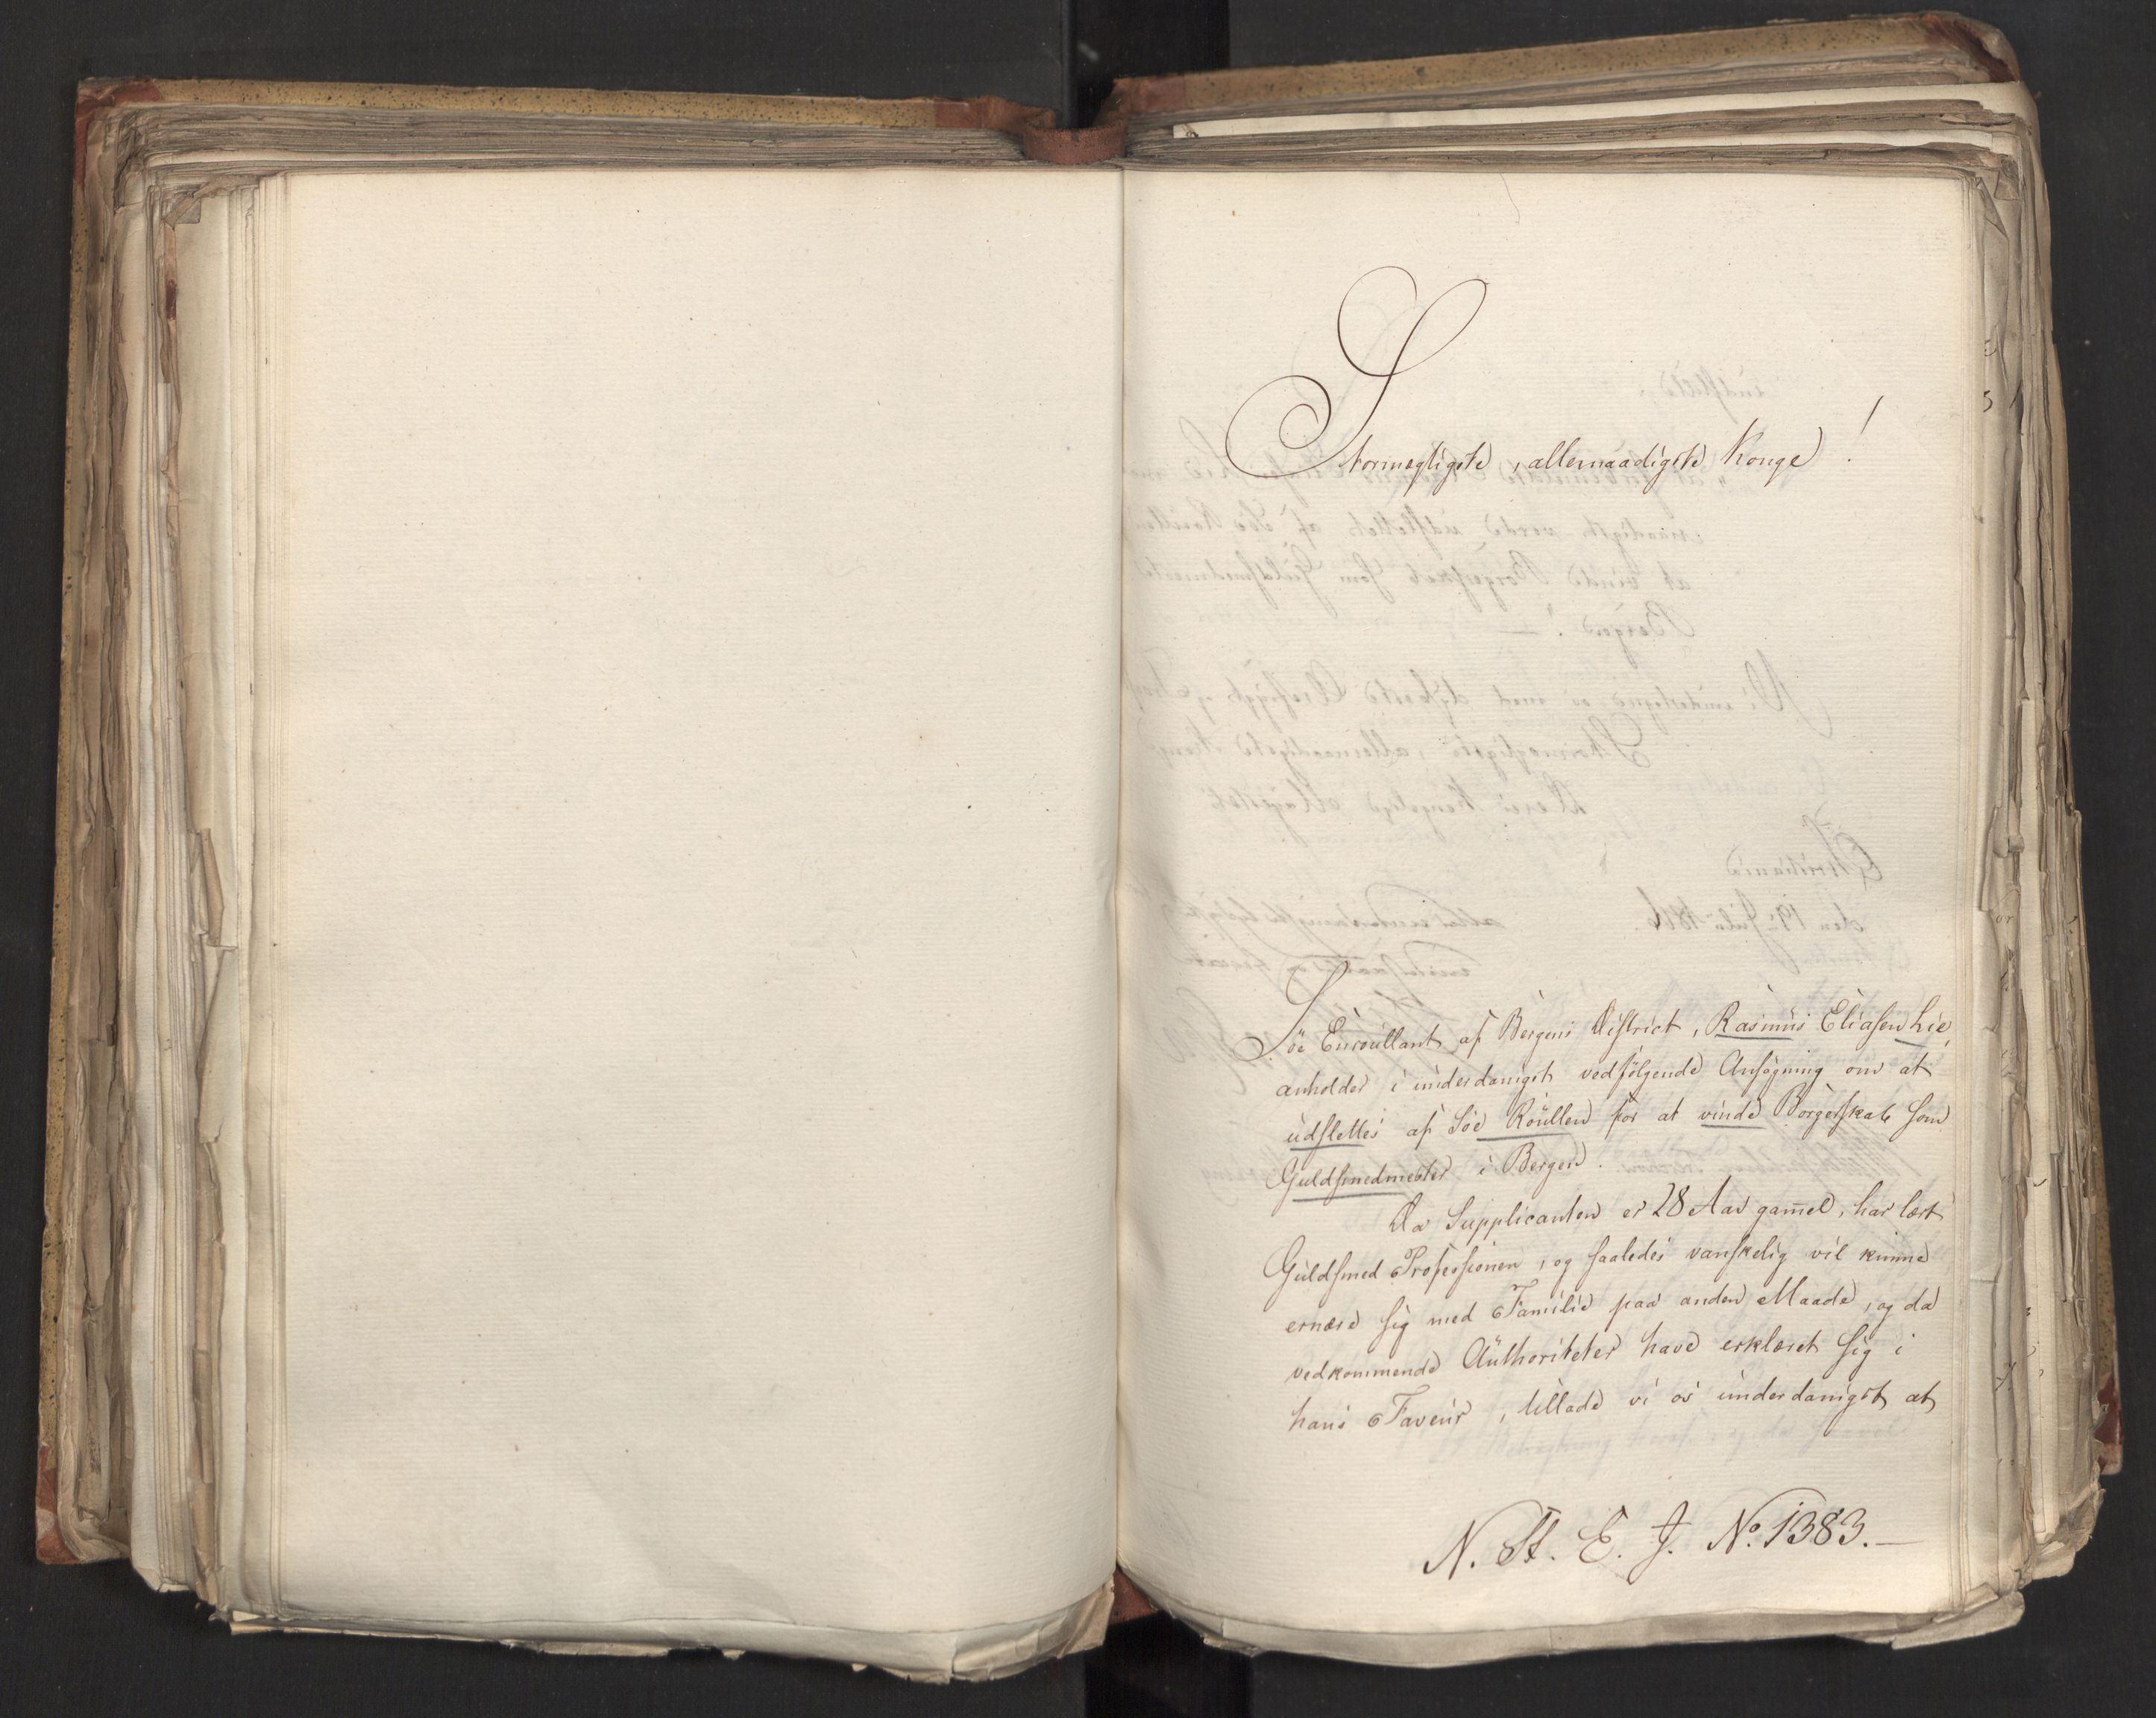 Stormægtigste, allernaadigste Konge!
Söe Enroullant af Bergens District, Rasmus Eliasen Lie,
anholder i underdanigst vedfølgende Ansøgning om at
udslettes af Söe Roullen for at vinde Borgerskab som
Guldsmedmester i Bergen.
Da Supplicanten er 28 Aar gam̅el, har lært
Guldsmed Professionen, og saaledes vanskelig vil kunne
ernære sig med Familie paa anden Maade, og da
vedkommende Authoriteter have erklæret sig i
hans Faveur, tillade vi os underdanigst at
N. St. E. J. No. 1383.—